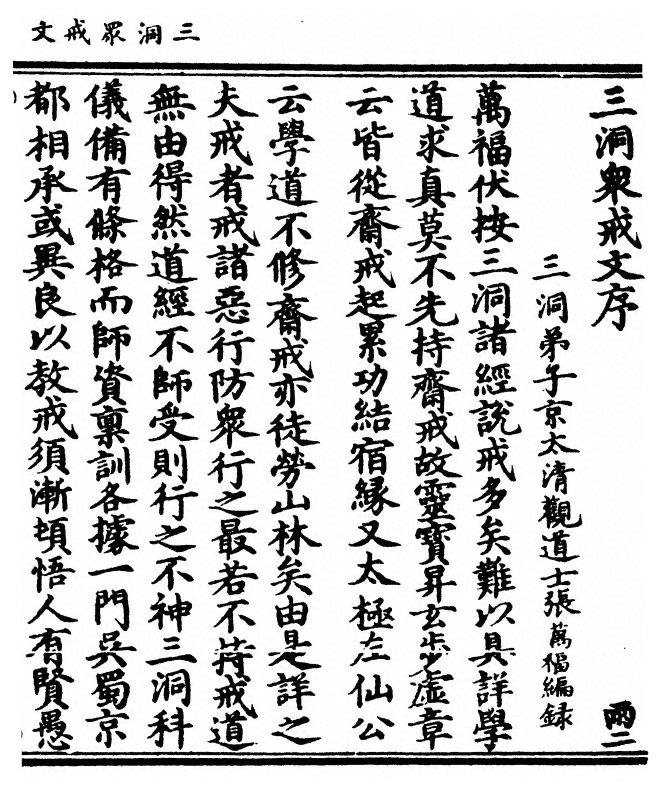 三洞眾戒文
三洞衆戒文序
雨二
三洞弟子京太清觀道士張萬福編録
萬福伏按三洞諸經說戒多矣難以具詳學
道求真莫不先持齋戒故靈寶昇玄步虛章
云皆從齋戒起累功結宿緣又太極左仙公
云學道不修齋戒亦徒勞山林矣由是詳之
夫戒者戒諸惡行防衆行之最若不持戒道
無由得然道經不師受則行之不神三洞科
儀備有條格而師資稟訓各據一門吳蜀京
都相承或異良以教戒須漸頓悟人有賢愚